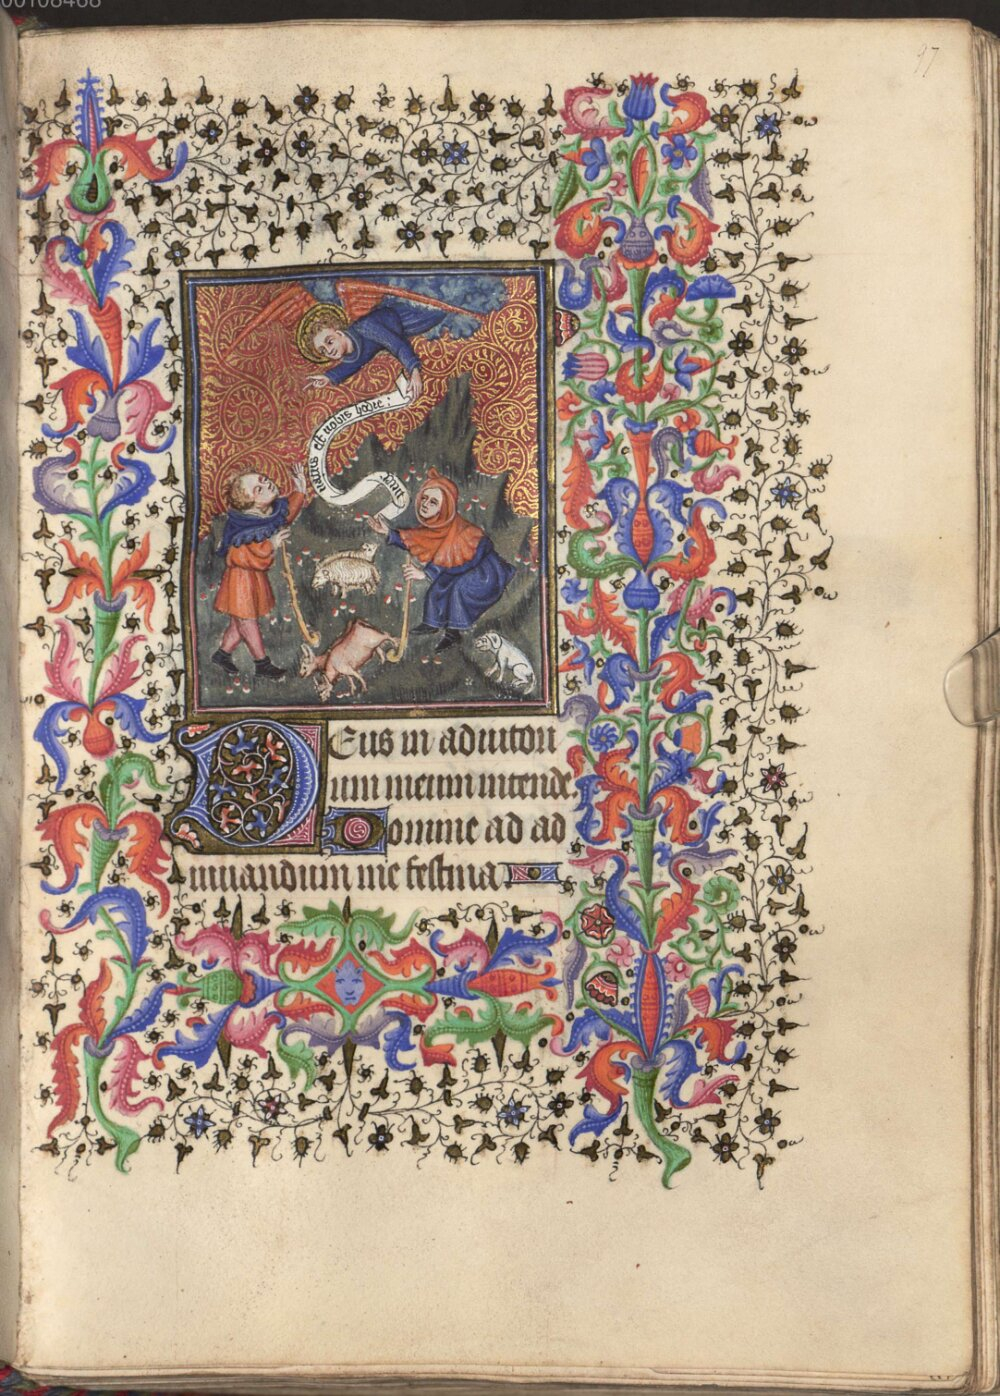 puer natus est nobis hodie :
Deus in adiutori
um meum intende
Domine ad ad
iuuandum me festina